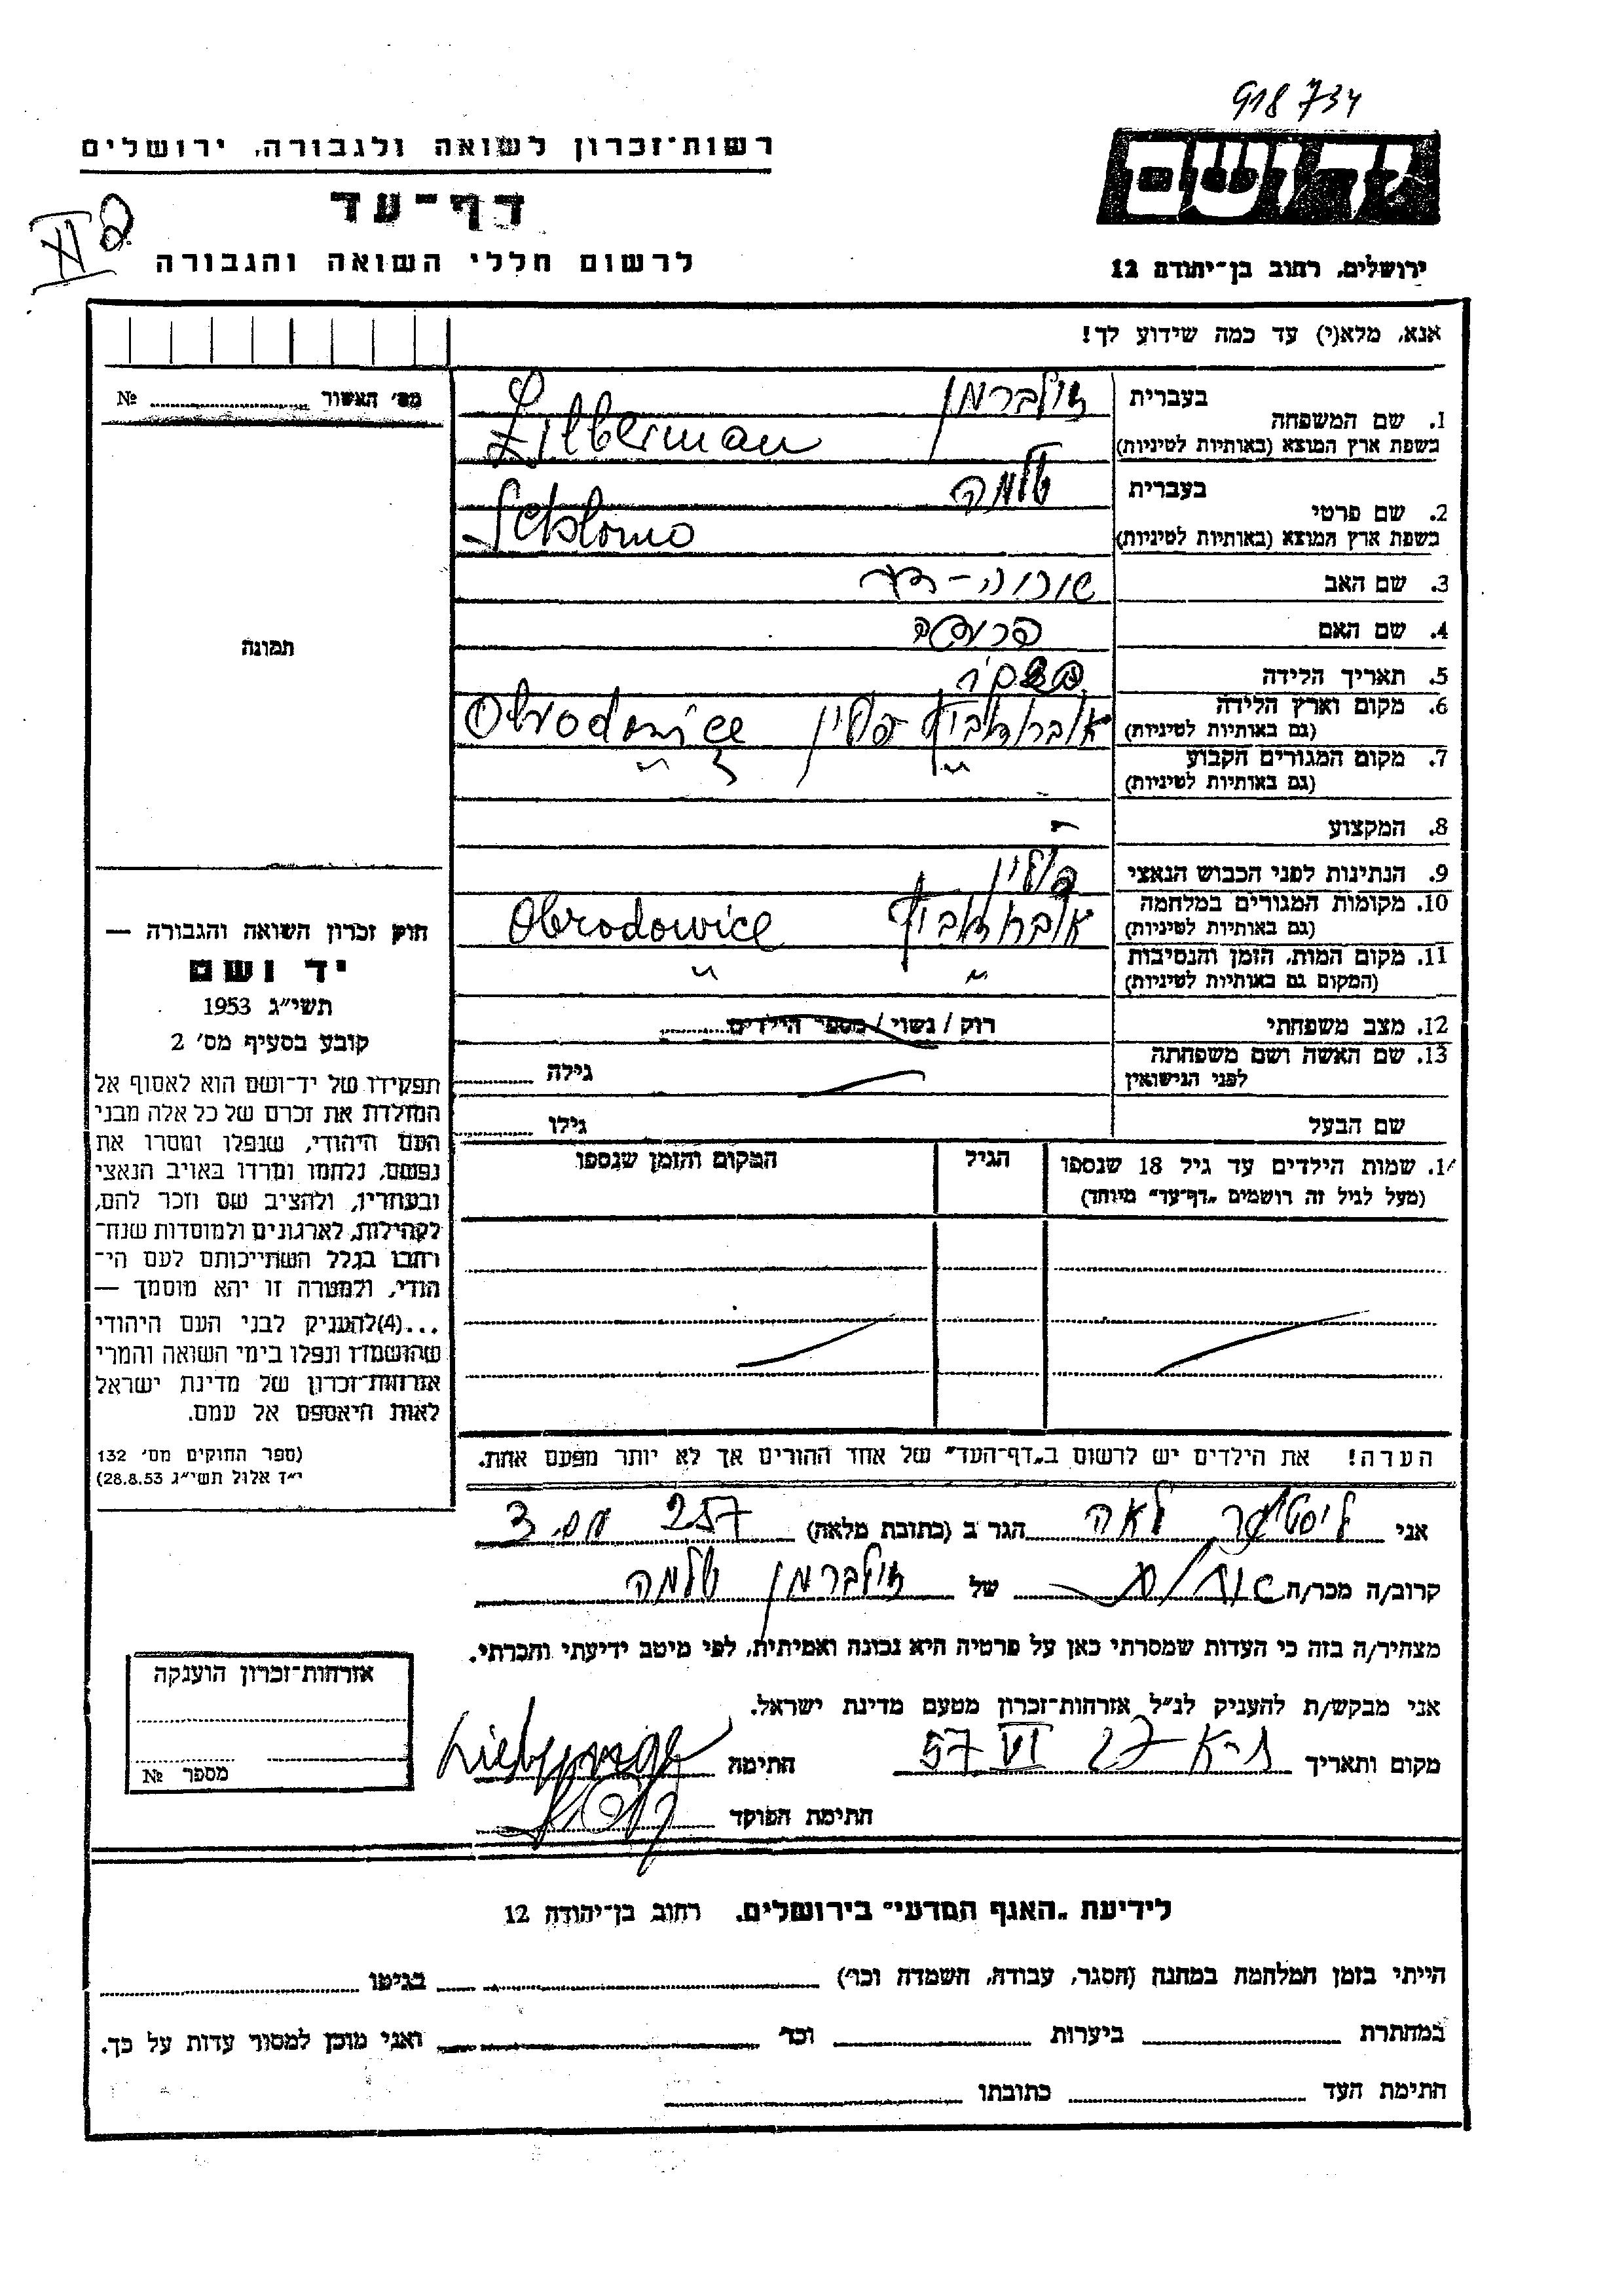 918734
רשות־זכרון לשואה ולגבורה, ירושלים
דף־עד
לרשום חללי השואה והגבורה
ירושלים, רחוב בן־יהודה 12
אנא, מלא(י) עד כמה שידוע לך!
מס׳ האשור № 
תמונה
חוק זכרון השואה והגבורה —
יד ושם
תשי״ג 1953
קובע בסעיף מס׳ 2
תפקידו של יד־ושם הוא לאסוף אל
המולדת את זכרם של כל אלה מבני
העם היהודי, שנפלו ומסרו את
נפשם, נלחמו ומרדו באויב הנאצי
ובעוזריו, ולהציב שם וזכר להם,
לקהילות, לארגונים ולמוסדות שנח־
רבו בגלל השתייכותם לעם הי־
הודי, ולמטרה זו יהא מוסמך —
...(4) להעניק לבני העם היהודי
שהושמדו ונפלו בימי השואה והמרי
אזרחות־זכרון של מדינת ישראל
לאות היאספם אל עמם.
(ספר החוקים מס׳ 132
י״ד אלול תשי״ג 28.8.53)
1. שם המשפחה
בעברית זילברמן
בשפת ארץ המוצא (באותיות לטיניות) Zilberman
2. שם פרטי
בעברית שלמה
בשפת ארץ המוצא (באותיות לטיניות) Schlomo
3. שם האב
4. שם האם
5. תאריך הלידה
6. מקום וארץ הלידה
(גם באותיות לטיניות) פולין Obrodowice
7. מקום המגורים הקבוע
(גם באותיות לטיניות) " "
8. המקצוע
9. הנתינות לפני הכבוש הנאצי פולין
10. מקומות המגורים במלחמה
(גם באותיות לטיניות) Obrodowice
11. מקום המות, הזמן והנסיבות
(המקום גם באותיות לטיניות) " "
12. מצב משפחתי רוק / נשוי / מספר הילדים
13. שם האשה ושם משפחתה
לפני הנישואין גילה
שם הבעל גילו
14. שמות הילדים עד גיל 18 שנספו הגיל המקום והזמן שנספו
(מעל לגיל זה רושמים „דף־עד״ מיוחד)
הערה! את הילדים יש לרשום ב„דף־העד״ של אחד ההורים אך לא יותר מפעם אחת.
אני לאה הגר ב (כתובת מלאה) 257 3
קרוב/ה מכר/ה של זילברמן שלמה
מצהיר/ה בזה כי העדות שמסרתי כאן על פרטיה היא נכונה ואמיתית, לפי מיטב ידיעתי והכרתי.
אני מבקש/ת להעניק לנ״ל אזרחות־זכרון מטעם מדינת ישראל.
מקום ותאריך 27 VI 57 חתימה
חתימת הפוקד
אזרחות־זכרון הוענקה
מספר №
לידיעת „האגף המדעי״ בירושלים, רחוב בן־יהודה 12
הייתי בזמן המלחמה במחנה (הסגר, עבודה, השמדה וכו׳) בגיטו
במחתרת ביערות וכו׳ ואני מוכן למסור עדות על כך.
חתימת העד כתובתו